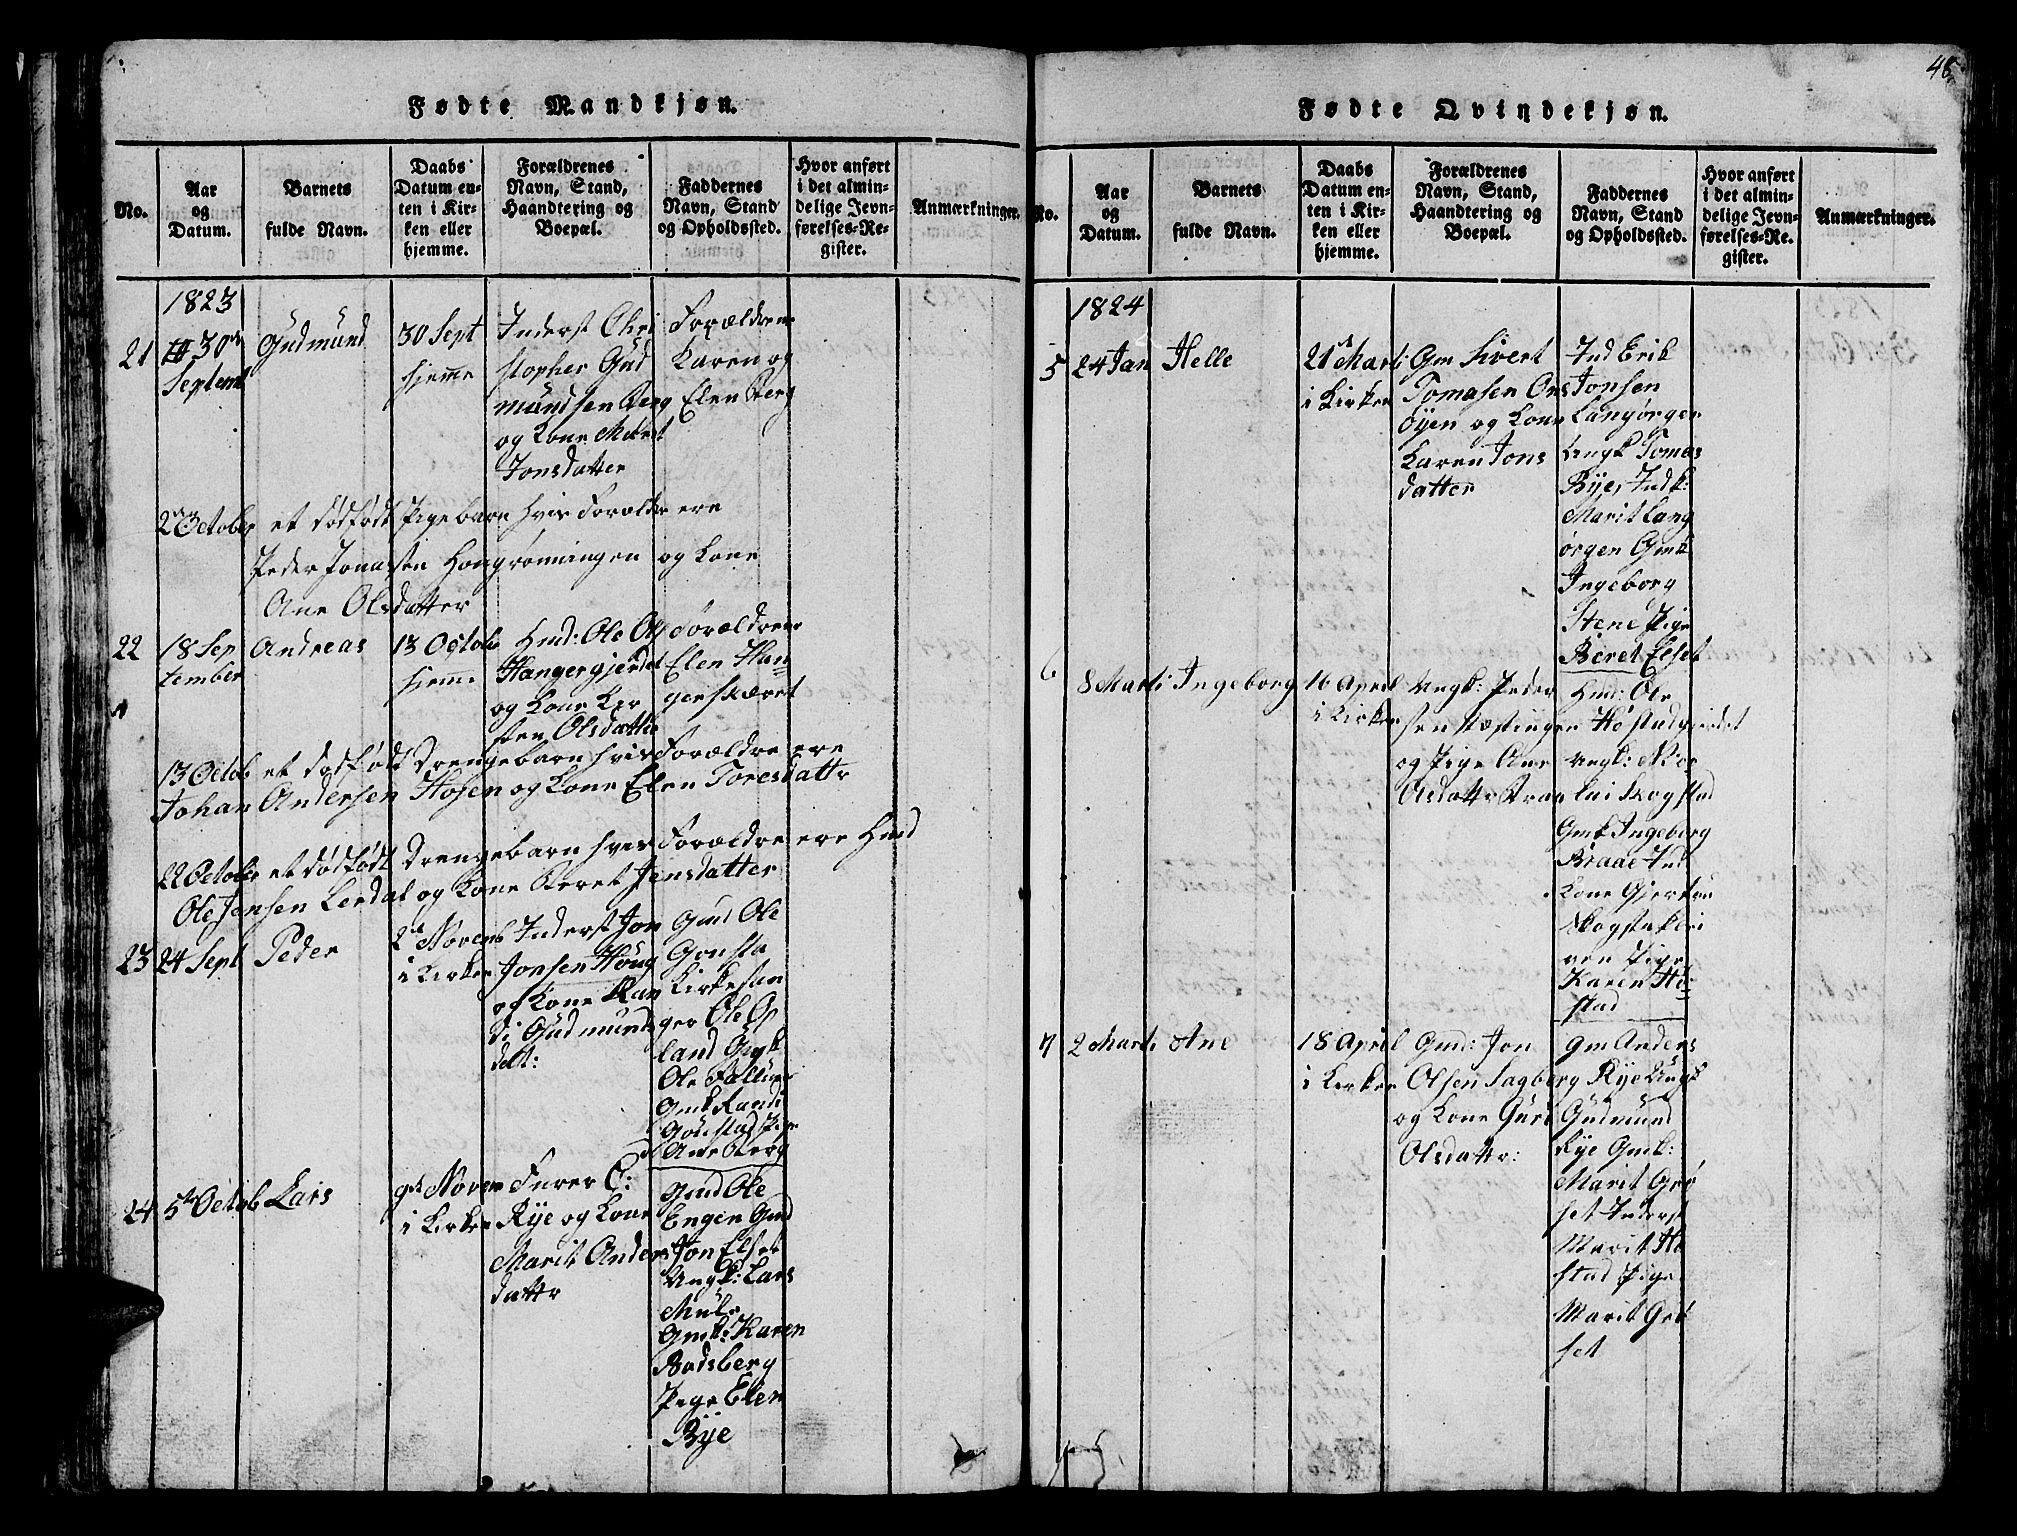 48
Fødte Mandkjøn.
No.
Aar
og
Datum.
Barnets
fulde Navn.
Daabs
Datum en-
ten i Kir-
ken eller
hjemme.
Forældrenes
Navn, Stand,
Haandtering og
Boepæl.
Faddernes
Navn, Stand
og Opholdssted.
Hvor anført
i det almin-
delige Jevn-
førelses-Re-
gister.
Anmærkninger.
1823
21
30
Septemb
Gudmund
30 Sept
hjeme
Inderst Chri
stopher Gud
mundsen Berg
og Kone Meret
Jonsdatter
Forældrene
Karen og
Elen Berg
2 October et dødfødt Pigebarn hvis Forældre ere
Peder Jonassen Hongrønningen og Kone
Ane Olsdatter
22
18 Sep
tember
Andreas
13 Octobr
hjeme
Hmd: Ole Ols
Hangergjerdet
og Kone Kir
sten Olsdatter
Forældrene
Elen Han
gerskæret
13 Octob et dødfødt Drengebarn hvis Forældre ere
Johan Andersen Hosen og Kone Elen Toresdattr
22 October et dødfødt Drengebarn hvis Forældre ere Hmd
Ole Jensen Lerdal og Kone Beret Jensdatter
23
24 Sept
Peder
2 Novemb
i Kirken
Inderst Jon
Jonsen Houg
og Kone Ran
di Gudmunds
datt:
Gmd Ole
Gousta
Kirkesan
ger Ole Op
land Ungk
Ole Fællum
Gmk Randi
Goustad Pige
Ane Berg
24
5te Octob
Lars
9de Novem
i Kirken
Furer C:
Rye og Kone
Marit Anders
dattr
Gmd Ole
Engen Gmd
Jon Elset
Ungk: Lars
Mule
Gmk: Karen
Rodsberg
Pige Elen
Rye
Fødte Qvindekjøn.
No.
Aar
og
Datum.
Barnets
fulde Navn.
Daabs
Datum en-
ten i Kir-
ken eller
hjemme.
Forældrenes
Navn, Stand,
Haandtering og
Boepæl.
Faddernes
Navn, Stand
og Opholdssted.
Hvor anført
i det almin-
delige Jevn-
førelses-Re-
gister.
Anmærkninger.
1824
5
24 Jan
Helle
21 Marti
i Kirken
Gm Sivert
Tomasen Ons
øyen og Kone
Karen Jons
datter
Ind Erik
Jonsen
Langørgen
Ungk Tomas
Bye, Indk:
Marit Lang
ørgen Gmk
Ingeborg
Stene Pige
Beret Elset
6
8 Marti
Ingeborg
16 April
i Kirken
Ungk: Peder
og Pige Ane
Olsdattr Braa
Hmd: Ole
Høstadgierdet
Ungk: Nic
lai Skogstad
Gmk Ingeborg
Braae Ind
Kone Gjertru
ven Pige
Karen Hø
stad
7
2 Marti
Ane
18 April
i Kirken
Gmd: Jon
Olsen Sagberg
og Kone Guri
Olsdattr:
gm Anders
Rye Ungk
Gudmund
Rye Gmk:
Marit Grø
set Inderst
Marit Hø
stad Pige
Marit Grø
set